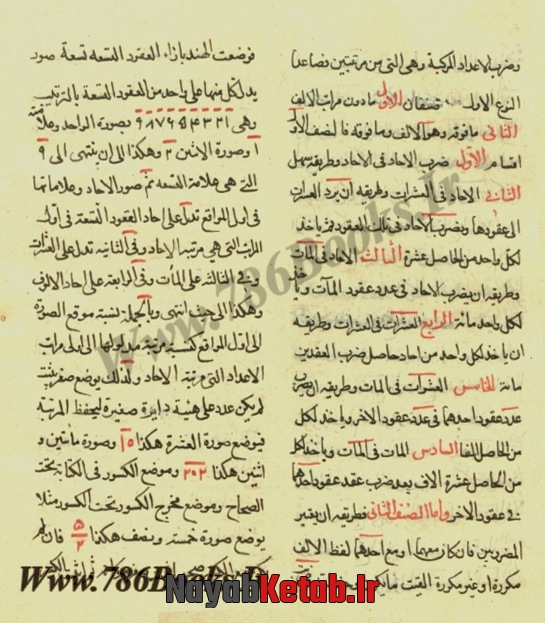 وضرب الاعداد المركبة وهى التى من مرتبتين فصاعدا
النوع الاول صنفان الاول مادون مرات الالف
الثانى مافوقه وهو الالف ومافوقه فالصنف الاول
اقسام الاول ضرب الاحاد فى الاحاد وطريقه سهل
الثانى الاحاد فى العشرات وطريقه ان يرد العشرات
الى عقودها ويضرب الاحاد فى تلك العقود فيؤخذ
لكل واحد من الحاصل عشرة الثالث الاحاد فى المات
وطريقه ان يضرب الاحاد فى عدد عقود المات ويأخذ
لكل واحد مائة الرابع العشرات فى العشرات وطريقه
ان ياخذ لكل واحد من احاد حاصل ضرب العقدين
مائة الخامس العشرات فى المات وطريقه ان يضرب
عدد عقود احدهما فى عدد عقود الاخر وياخذ لكل
من الحاصل الفا السادس المات فى المات وياخذ لكل
من الحاصل عشرة الاف بعد ضرب عقد عقود احدهما
فى عقود الاخر واما الصنف الثانى فطريقه ان يعتبر
المضروبين فان كان معهما او مع احدهما لفظ الالف
مكررة او غير مكررة القيت
فوضعت الهند بازاء العقود التسعة تسعة صور
يدل كل منها على واحد من العقود التسعة بالترتيب
وهى ١ ٢ ٣ ۴ ۵ ۶ ٧ ٨ ٩ فصورة الواحد وعلامته
١ وصورة الاثنين ٢ وهكذا الى ان ينتهى الى ٩
التى هى علامة التسعة ثم صور الاحاد وعلاماتها
فى اول المواقع تدل على احاد العقود التسعة فى اول
المراتب التى هى مرتبة الاحاد وفى الثانية تدل على العشرات
وفى الثالثة على المأت وفى الرابعة على احاد الالوف
وهكذا الى حيث انتهى وبالجملة نسبة موقع الصورة
الى اول المواقع كنسبة مرتبة مدلولها الى اولى مراتب
الاعداد التى مرتبة الاحاد ولذلك يوضع صفر بنية
لم يكن عدد على هيئة دايرة صغيرة ليحفظ المرتبة
فيوضع صورة العشرة هكذا ١٥ وصورة مائتين و
اثنين هكذا ٢٠٢ وموضع الكسور فى الكتابة تحت
الصحاح وموضع مخرج الكسور تحت الكسور مثلا
يوضع صورة خمسة ونصف هكذا ۵ ٢ فان لم
Www.786Books.Ir
Www.786Books.Ir
NayabKetab.Ir